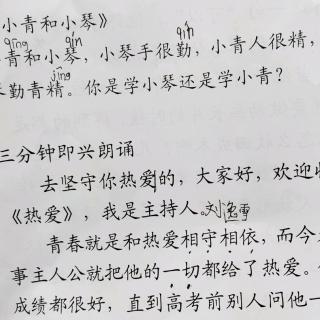 小青和小琴》
qīng qín qín
青和小琴，小琴手很勤，小青人很精，
jīng
勤青精。你是学小琴还是学小青？
三分钟即兴朗诵
去坚守你热爱的，大家好，欢迎
《热爱》，我是主持人。刘逸雨
青春就是和热爱相守相依，而今
事主人公就把他的一切都给了热爱。
成绩都很好，直到高考前别人问他一